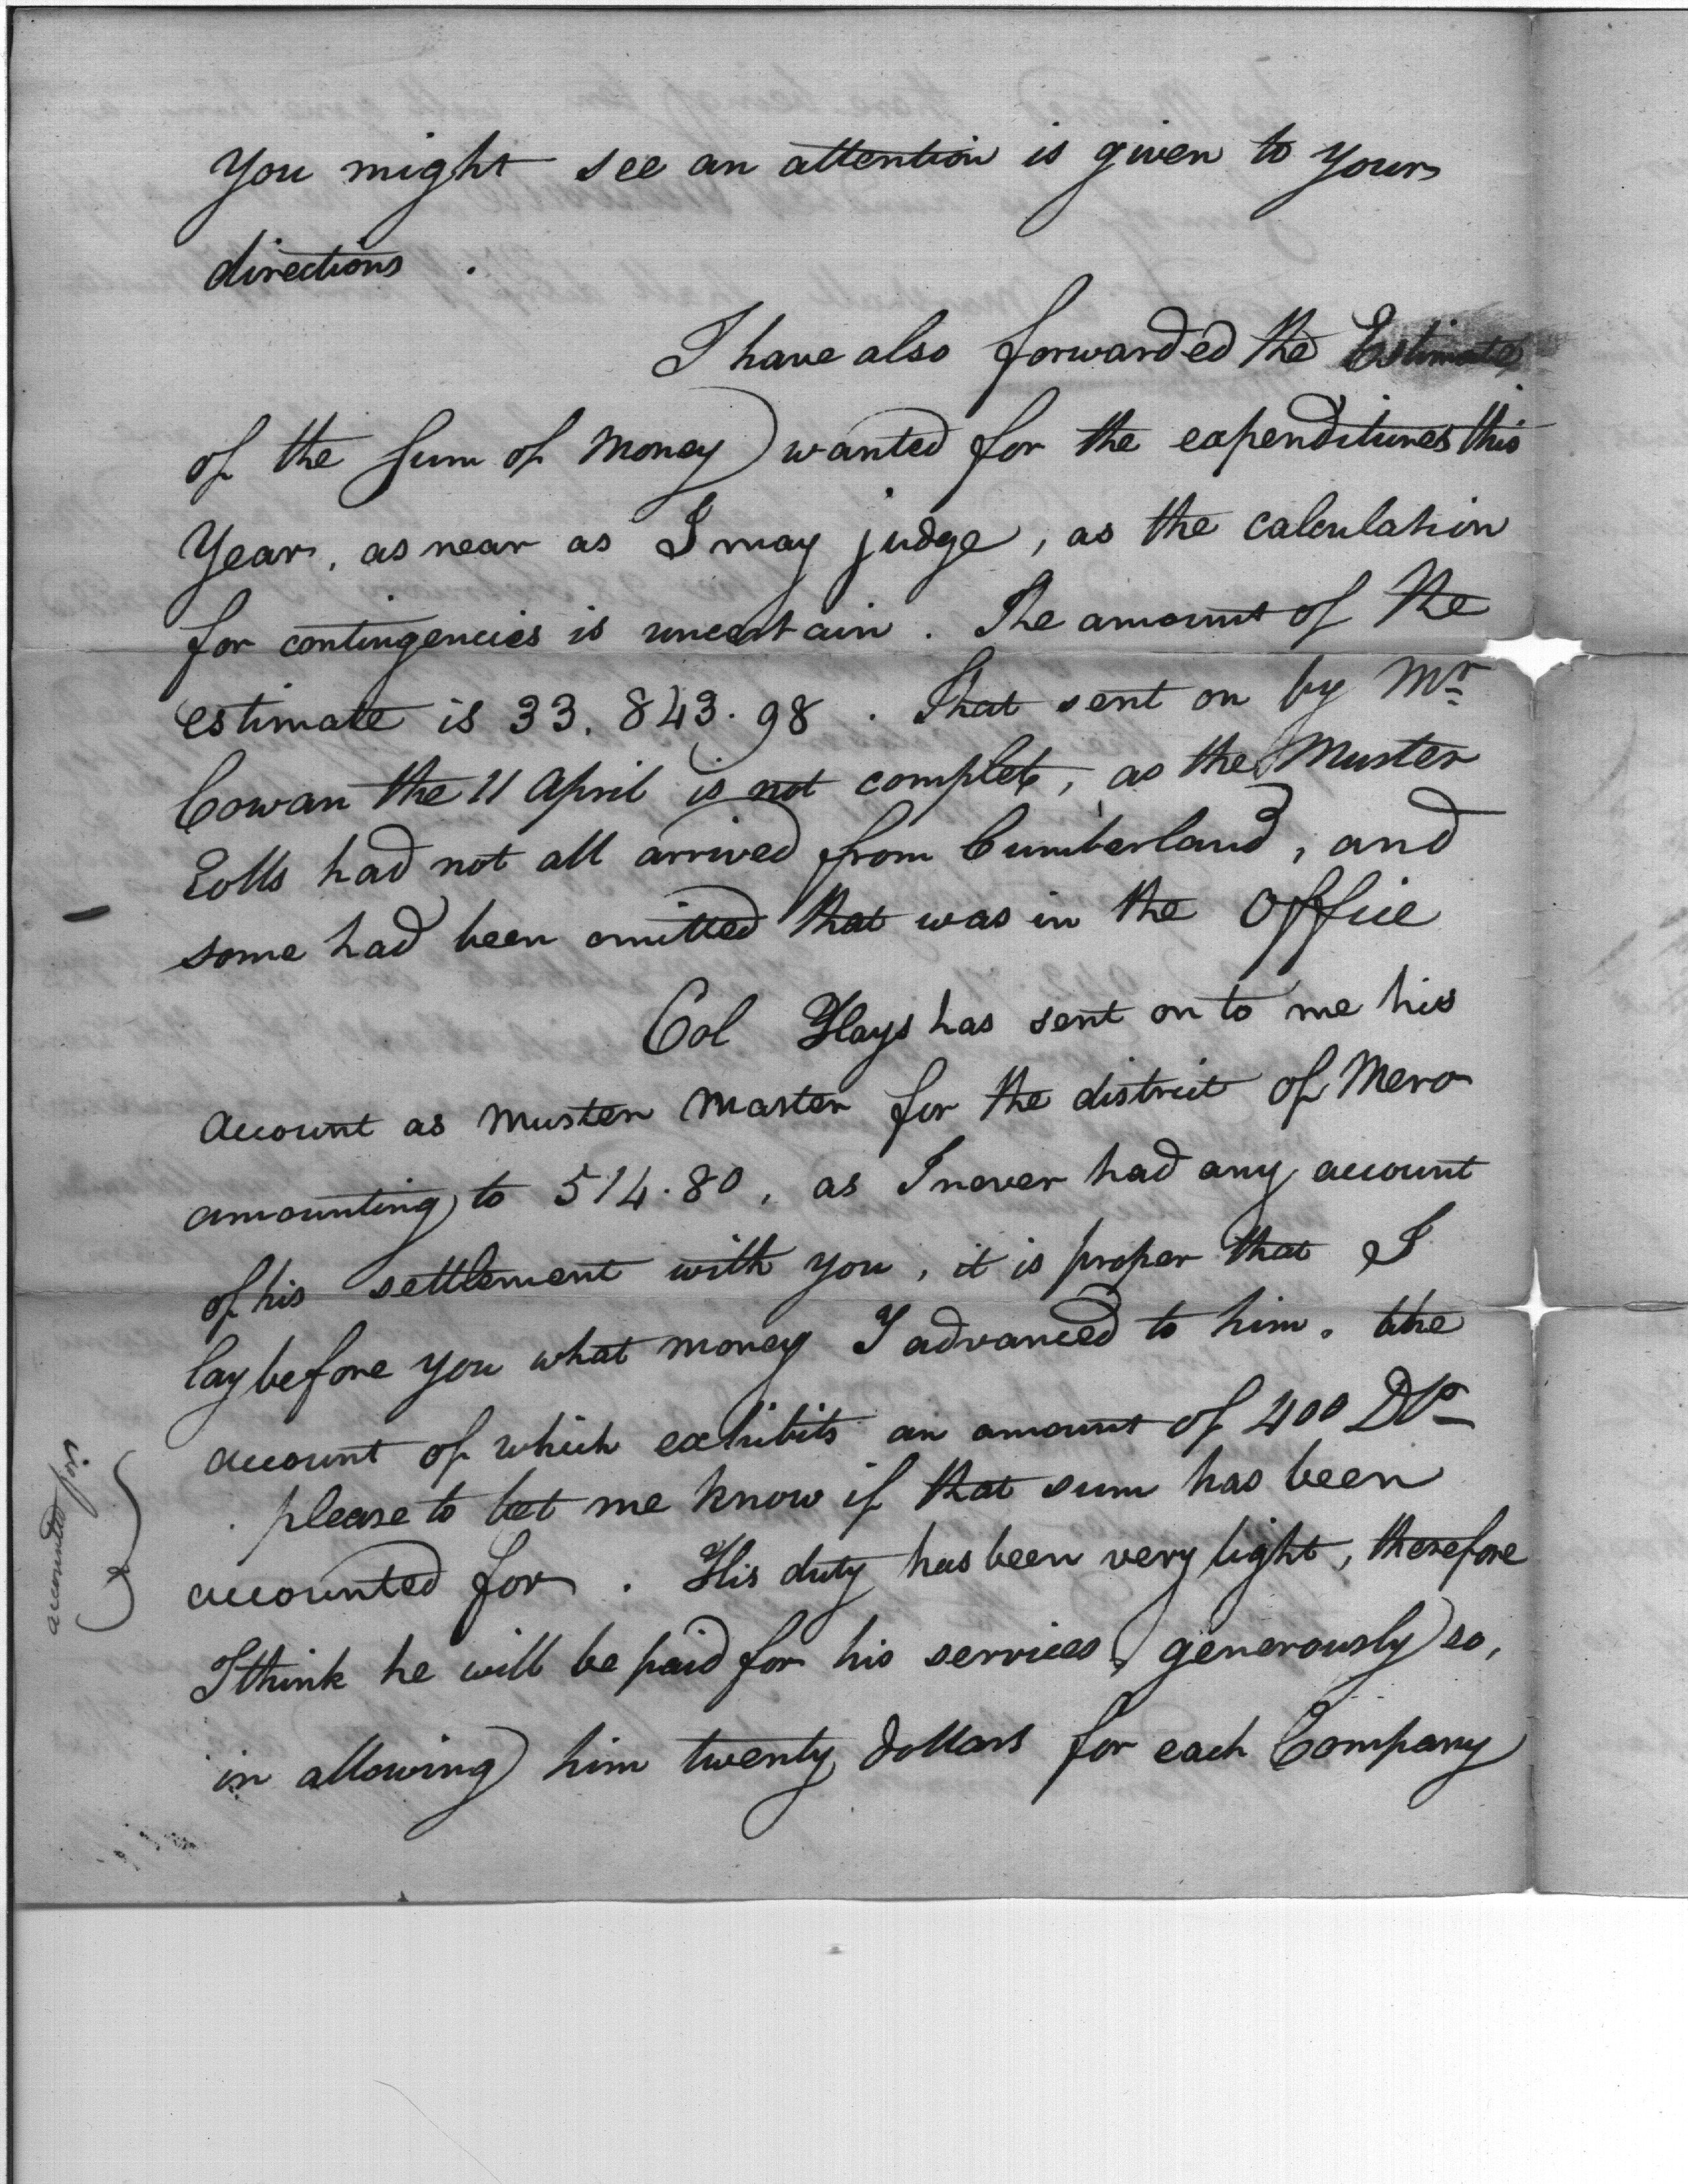 you might see an attention is given to your
directions .
I have also forwarded the Estimate
of the sum of money wanted for the expenditures this
Year, as near as I may judge, as the calculation
for contingencies is uncertain . The amount of the
estimate is 33. 843. 98 . That sent on by Mr
Cowan the 11 April is not complete, as the Muster
Rolls had not all arrived from Cumberland, and
some had been omitted that was in the Office
Col Hays has sent on to me his
account as Muster Master for the district of Mero
amounting to 514.80, as I never had any account
of his settlement with you, it is proper that I
lay before you what money I advanced to him. the
account of which exhibits an amount of 400 Drs
. please to let me know if that sum has been
accounted for . His duty has been very light, therefore
I think he will be paid for his services, generously so,
in allowing him twenty dollars for each Company
accounted for